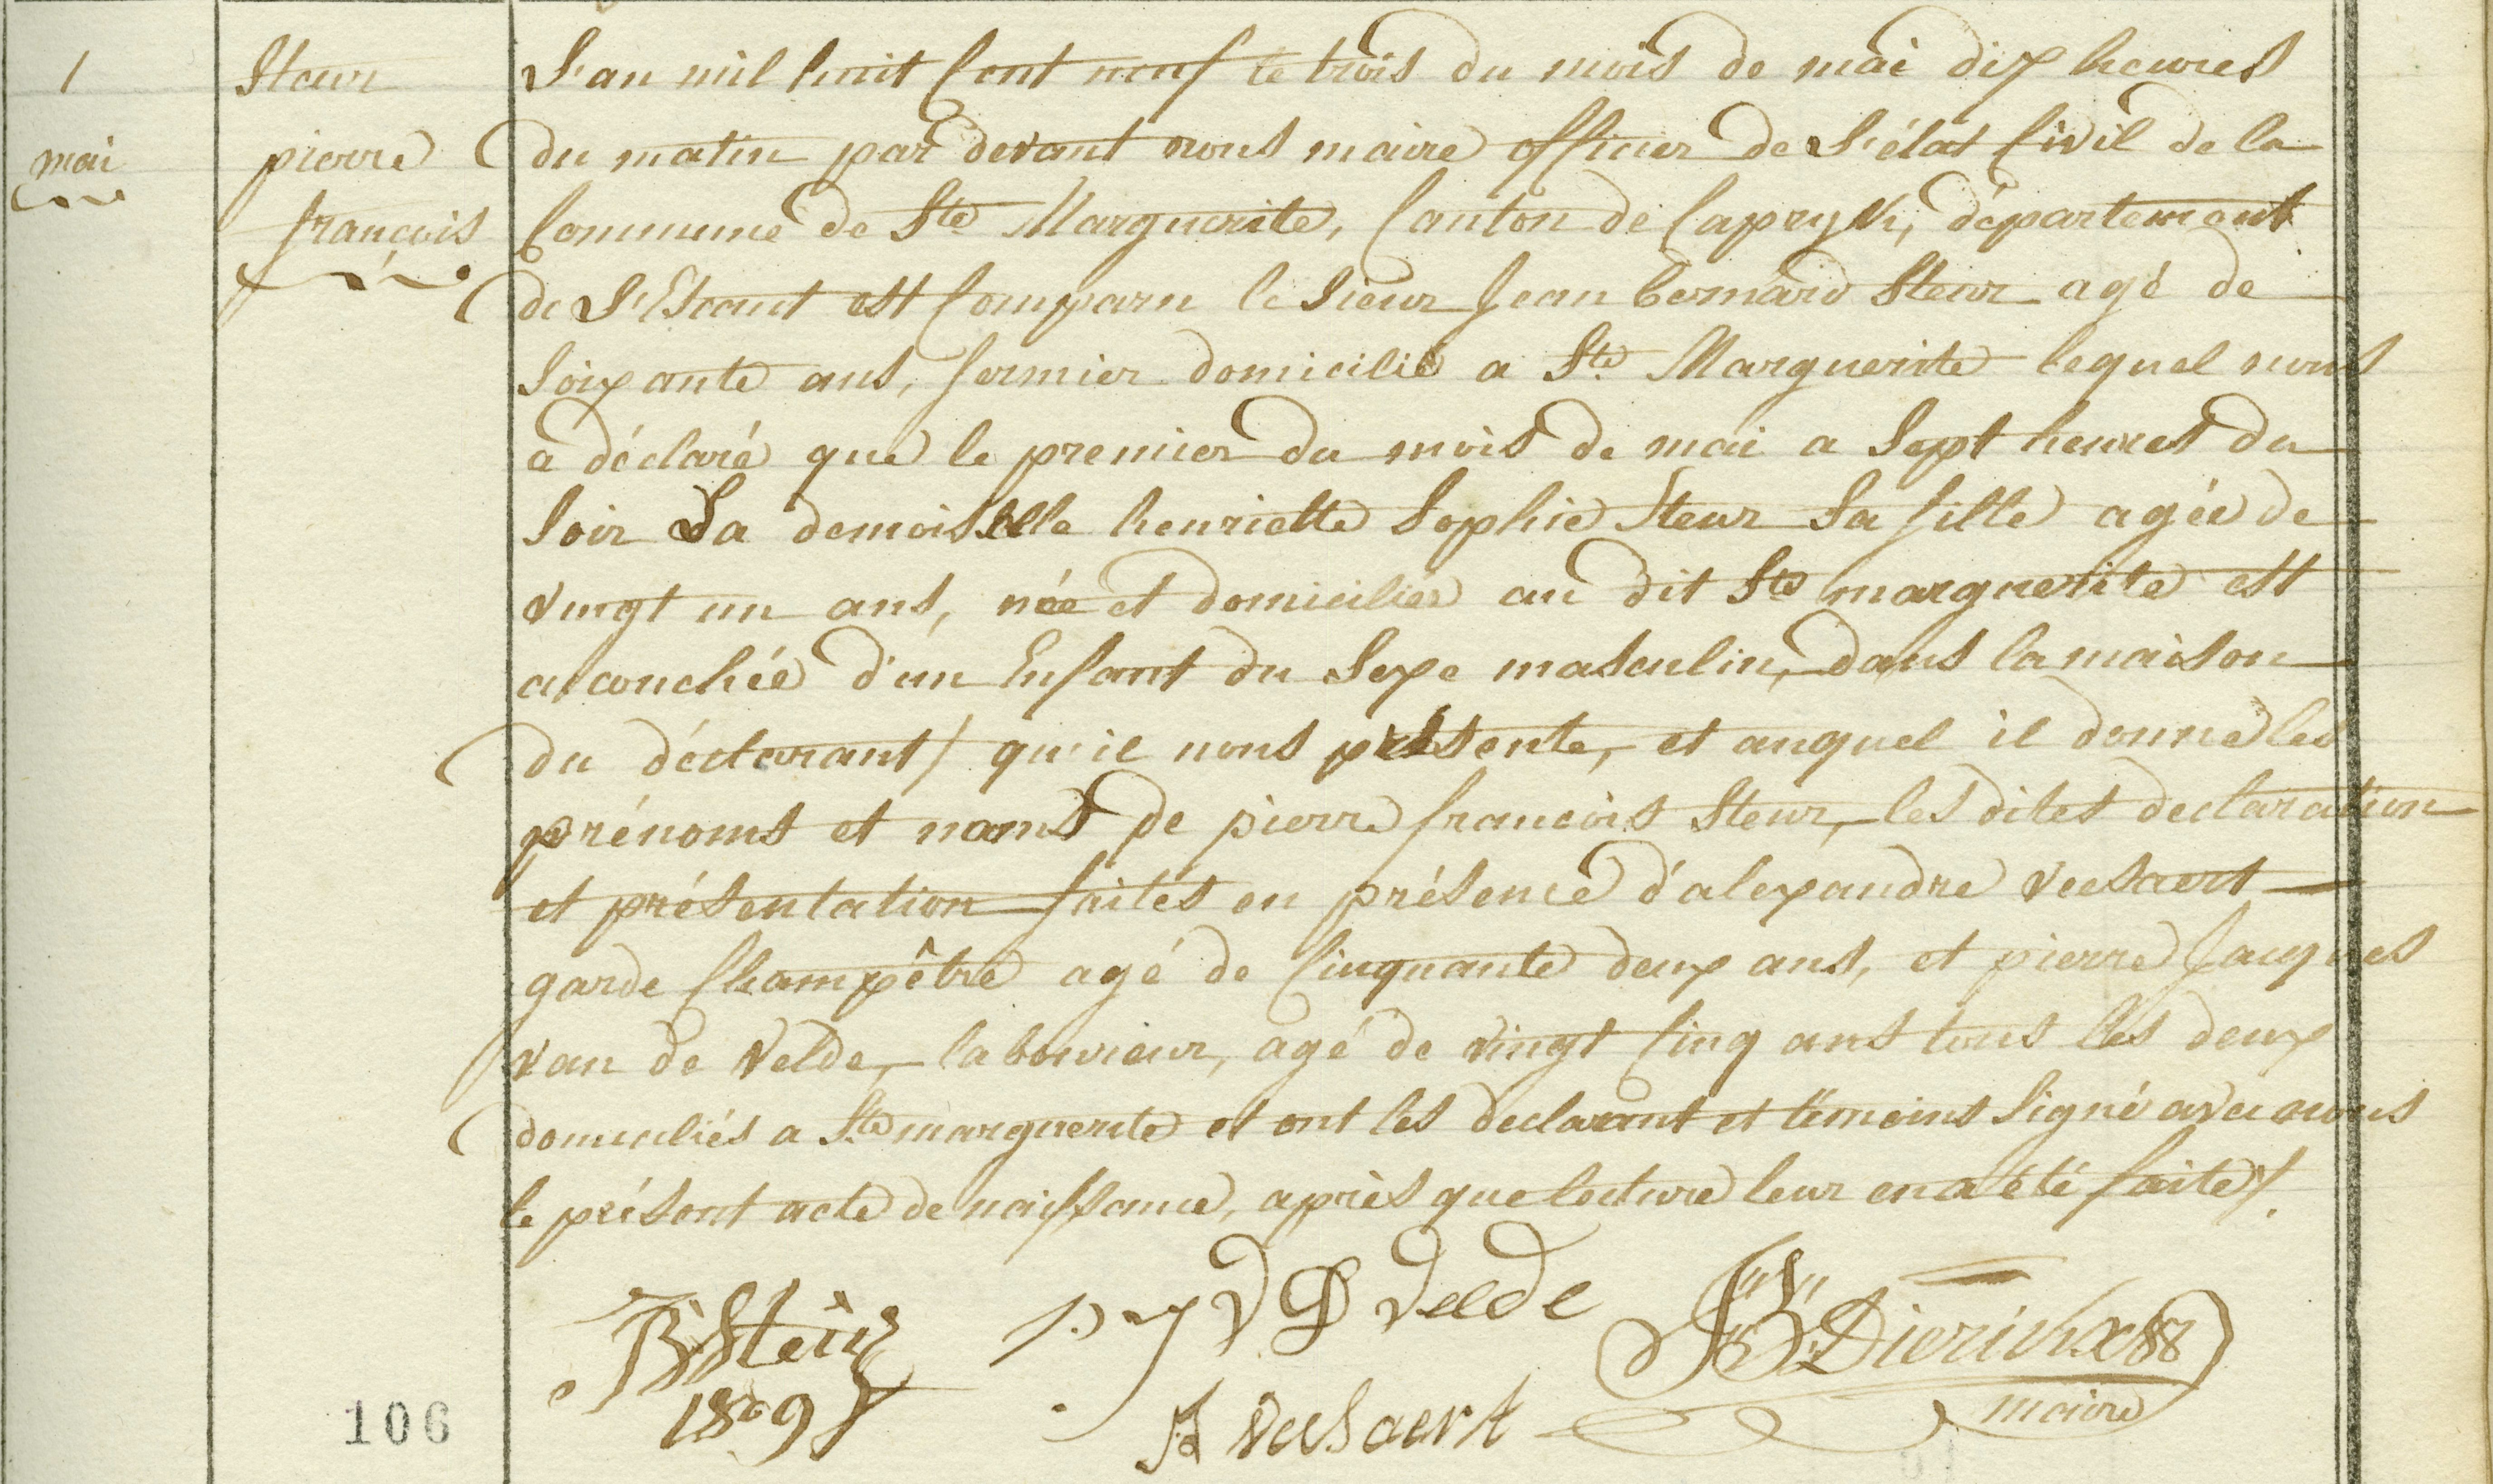 1
mai
Steur
pierre
françois
L'an mil huit Cent neuf le trois du mois de mai dix heures
du matin par devant nous maire officier de L'état Civil de la
Commune de Ste Marguerite, Canton de Capryk, département
de L'Escaut est Comparu le Sieur Jean bernard Steur agé de
Soixante ans, fermier domicilié a Ste Marguerite lequel nous
a déclaré que le premier du mois de mai a Sept heures du
Soir La demoiselle henriette Sophie Steur Sa fille agée de
vingt un ans, née et domiciliée au dit Ste marguerite est
accouchée d'un Enfant du Sexe masculin, dans la maison
du déclarant / qu'il nous présente, et auquel il donne les
prénoms et noms de pierre françois Steur, les dites declaration
et présentation faites en présence d'alexandre veesaert
garde Champêtre agé de Cinquante deux ans, et pierre Jacques
van de Velde, laboureur, agé de vingt Cinq ans tous les deux
domiciliés a Ste marguerite et ont les declarant et témoins Signé avec nous
le présent acte de naissance, après que lecture leur en a été faite /.
JBSteur
1809
p. J V D Velde
A veesaert
JB: Dierickx
maire
106